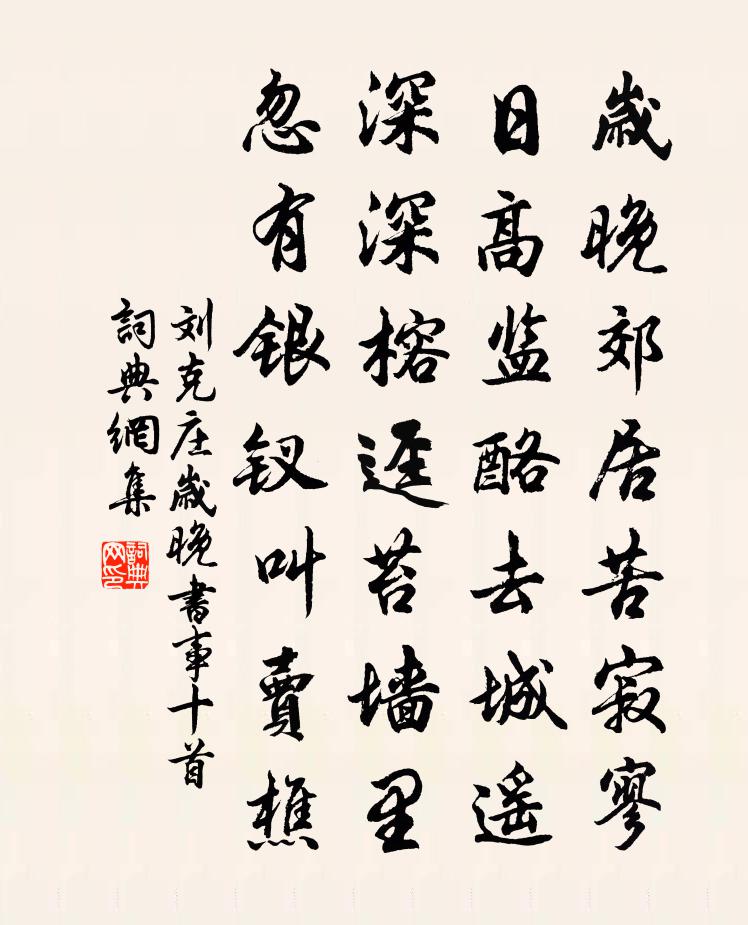 歲晚郊居苦寂寥
日高监酪去城遥
深深榕逕苔墙里
忽有銀钗叫賣樵
刘克庄歲晚書事十首
詞典網集
詞典网印